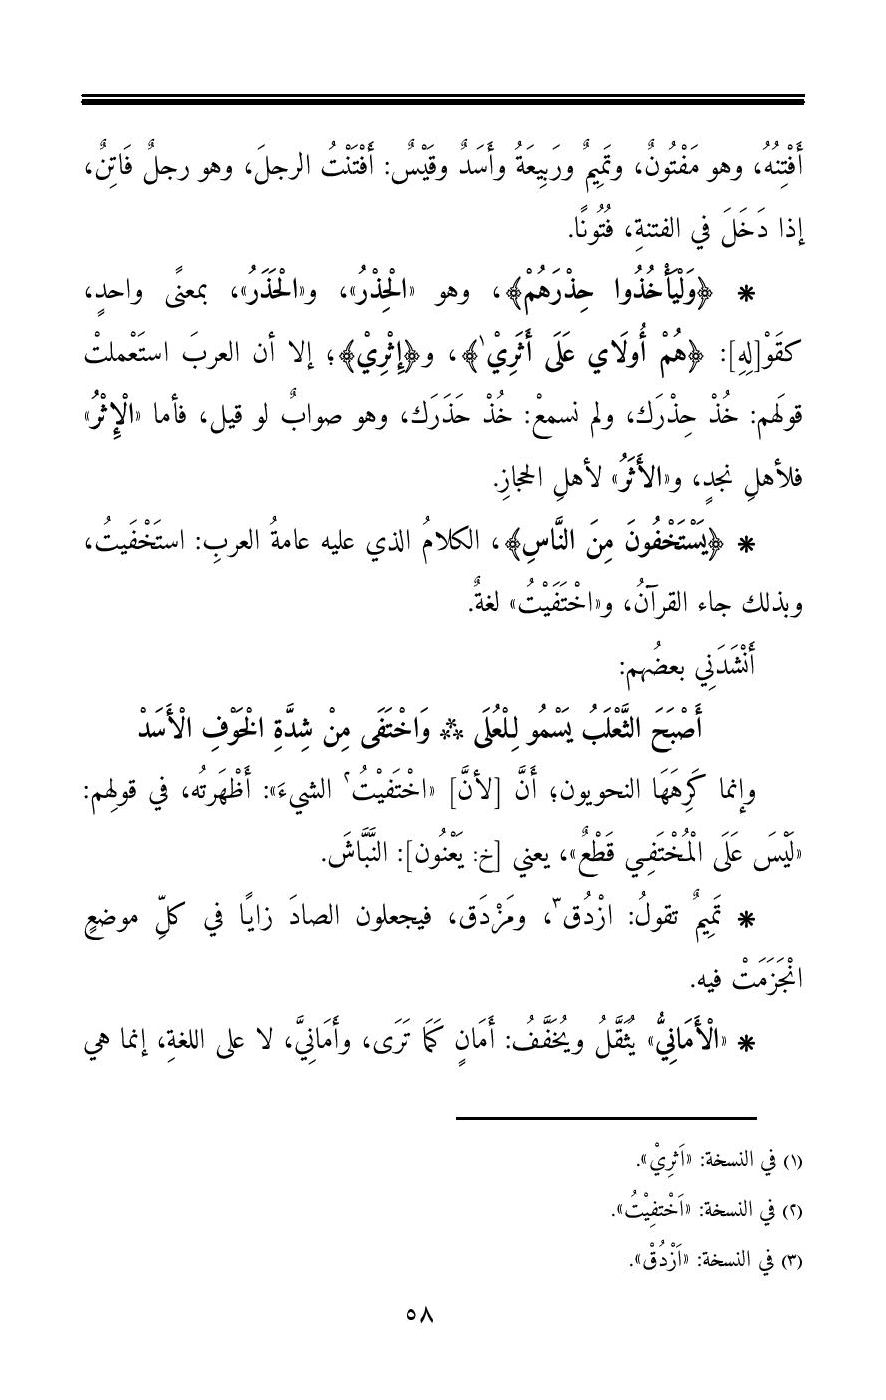 أَفْتِنُهُ، وهو مَفْتُونٌ، وتَمِيمٌ ورَبِيعَةُ وأَسَدٌ وقَيْسٌ: أَفْتَنْتُ الرجلَ، وهو رجلٌ فَاتِنٌ،
إذا دَخَلَ في الفتنةِ، فُتُونًا.
* ﴿وَلْيَأْخُذُوا حِذْرَهُمْ﴾، وهو «الْحِذْرُ»، و«الْحَذَرُ»، بمعنًى واحدٍ،
كقَوْ[لِهِ]: ﴿هُمْ أُولَاي عَلَى أَثَرِيْ١﴾، و﴿إِثْرِيْ﴾؛ إلا أن العربَ استَعْملتْ
قولَهم: خُذْ حِذْرَك، ولم نسمعْ: خُذْ حَذَرَك، وهو صوابٌ لو قيل، فأما «الْإِثْرُ»
فلأهلِ نجدٍ، و«الأَثَرُ» لأهلِ الحجازِ.
* ﴿يَسْتَخْفُونَ مِنَ النَّاسِ﴾، الكلامُ الذي عليه عامةُ العربِ: استَخْفَيتُ،
وبذلك جاء القرآنُ، و«اخْتَفَيْتُ» لغةٌ.
أَنْشَدَنِي بعضُهم:
أَصْبَحَ الثَّعْلَبُ يَسْمُو لِلْعُلَى ⁂ وَاخْتَفَى مِنْ شِدَّةِ الْخَوْفِ الْأَسَدْ
وإنما كَرِهَهَا النحويون؛ أَنَّ [لأنَّ] «اخْتَفيْتُ٢ الشيءَ»: أَظْهَرتُه، في قولِهم:
«لَيْسَ عَلَى الْمُخْتَفِي قَطْعٌ»، يعني [خ: يَعْنُون]: النَّبَّاشَ.
* تَمِيمٌ تقولُ: ازْدُق٣، ومَزْدَق، فيجعلون الصادَ زايًا في كلِّ موضعٍ
انْجَزَمَتْ فيه.
* «الْأَمَانِيُّ» يُثَقَّلُ ويُخَفَّفُ: أَمَانٍ كَمَا تَرَى، وأَمَانِيَّ، لا على اللغةِ، إنما هي
(١) في النسخة: «اَثرِيْ».
(٢) في النسخة: «اَخْتفِيْتُ».
(٣) في النسخة: «اَزْدُقْ».
٥٨